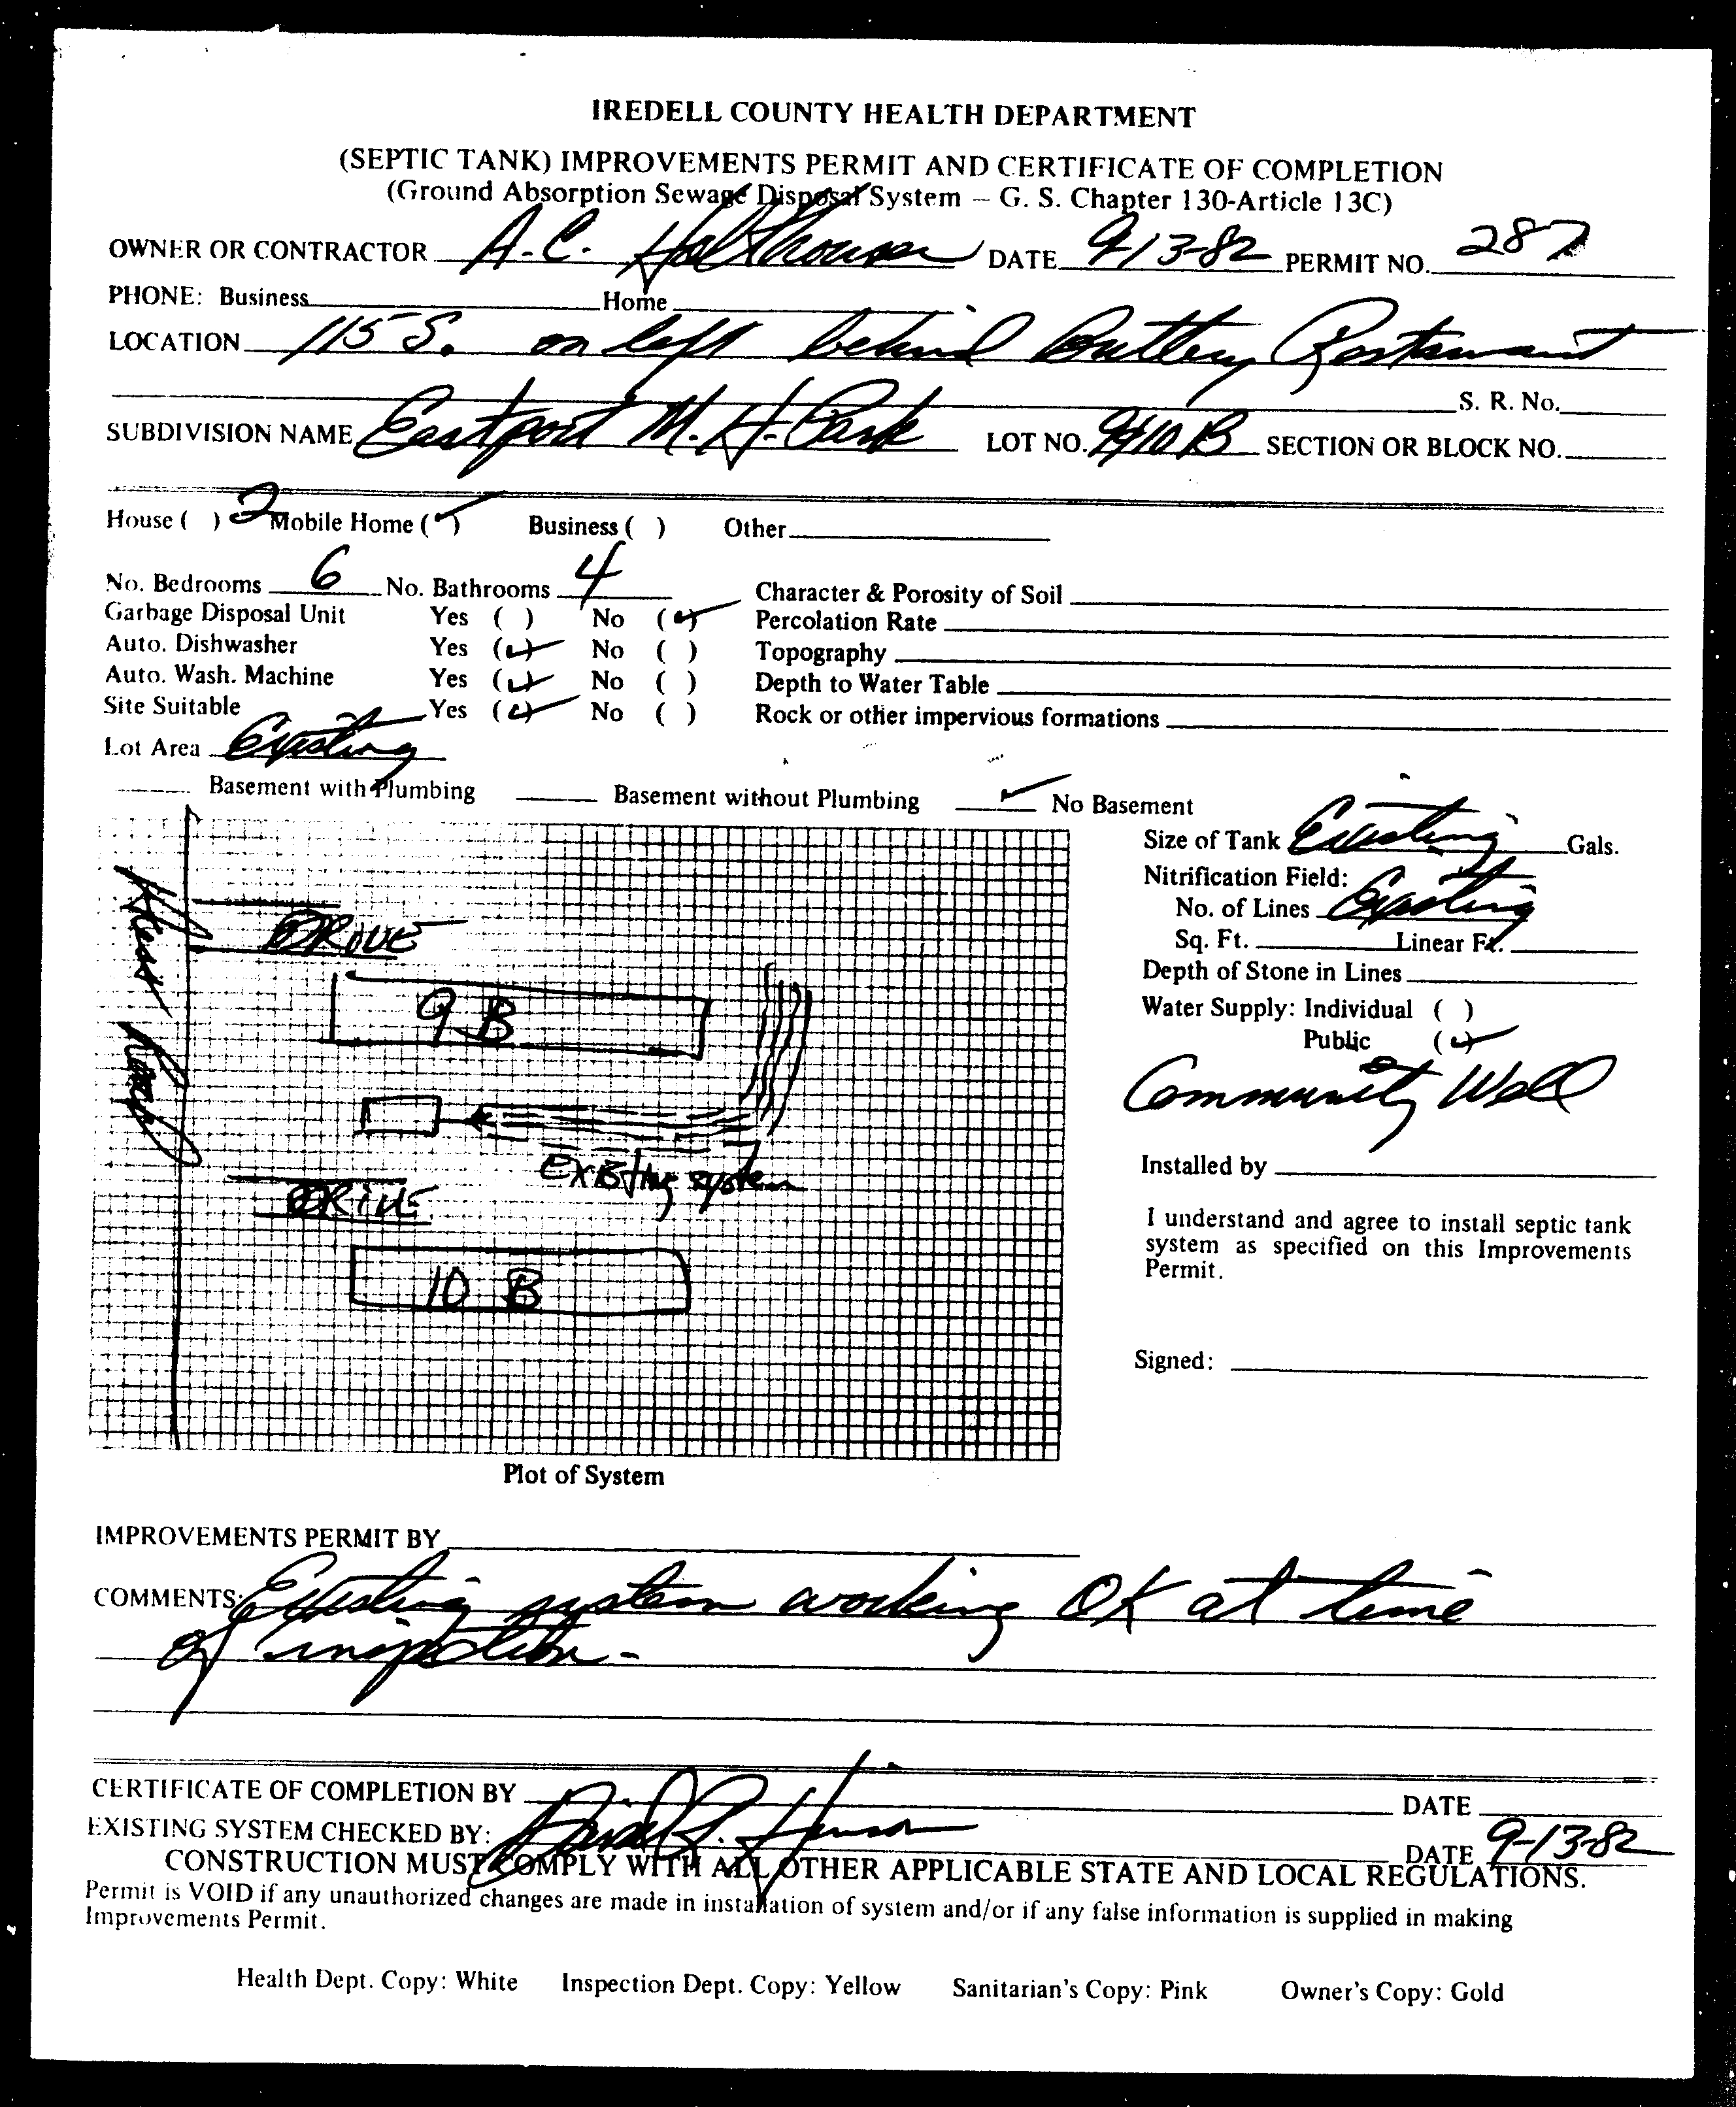 IREDELL COUNTY HEALTH DEPARTMENT
(SEPTIC TANK) IMPROVEMENTS PERMIT AND CERTIFICATE OF COMPLETION
(Ground Absorption Sewage Disposal System – G. S. Chapter 130-Article 13C)
OWNER OR CONTRACTOR A.C. DATE 9/13-82 PERMIT NO. 287
PHONE: Business Home
LOCATION 115 S. on left behind Restaurant
S. R. No.
SUBDIVISION NAME Eastport M. H. Park LOT NO. 9/10 B SECTION OR BLOCK NO.
House ( ) 2 Mobile Home (✓) Business ( ) Other
No. Bedrooms 6 No. Bathrooms 4 Character & Porosity of Soil
Garbage Disposal Unit Yes ( ) No (✓) Percolation Rate
Auto. Dishwasher Yes (✓) No ( ) Topography
Auto. Wash. Machine Yes (✓) No ( ) Depth to Water Table
Site Suitable Yes (✓) No ( ) Rock or other impervious formations
Lot Area Existing
Basement with Plumbing Basement without Plumbing ✓ No Basement
Size of Tank Existing Gals.
Nitrification Field:
No. of Lines Existing
Sq. Ft. Linear Ft.
Depth of Stone in Lines
Water Supply: Individual ( )
Public (✓)
Community Well
Installed by
I understand and agree to install septic tank
system as specified on this Improvements
Permit.
Signed:
DRIVE
9 B
Existing system
DRIVE
10 B
Plot of System
IMPROVEMENTS PERMIT BY
COMMENTS: Existing system working OK at time
of inspection-
CERTIFICATE OF COMPLETION BY DATE
EXISTING SYSTEM CHECKED BY: DATE 9-13-82
CONSTRUCTION MUST COMPLY WITH ALL OTHER APPLICABLE STATE AND LOCAL REGULATIONS.
Permit is VOID if any unauthorized changes are made in installation of system and/or if any false information is supplied in making
Improvements Permit.
Health Dept. Copy: White Inspection Dept. Copy: Yellow Sanitarian's Copy: Pink Owner's Copy: Gold